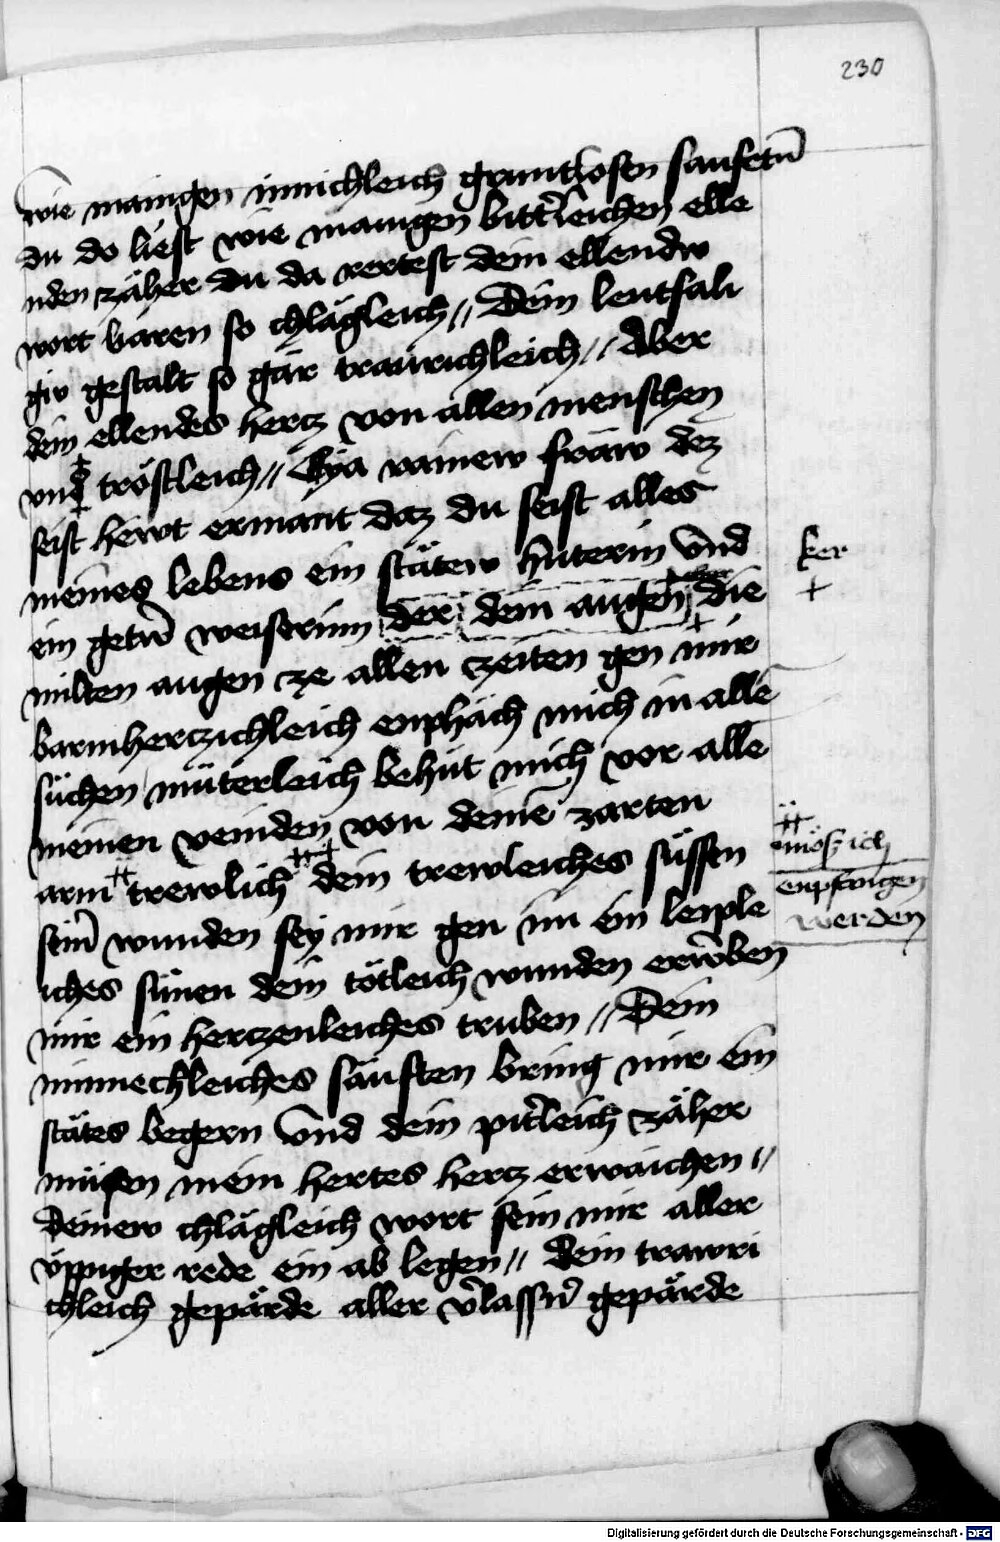 230
wie manigen innichleich gruntlosen saufetzñ
du do liest wie manigen bittr̄leichen elle
nden zäher du da rertest dein ellendw
wort bären so chlägleich // Dein leutsali
giv gestalt so gär traurichleich // Aber
dein ellendes hercz von allen menschen
vnd tröstleich // Eya rainew fräw dez
seist hewt ermant daz du seist alles
meines lebens ein stätew hüterin vnd
ein getrw̄ weiserinn der dein augen die
ker
milten augen ze allen czeiten gen mir
barmherczichleich enphäch mich in allē
süchen müterleich behüt mich vor alle
meinen veinden von deinē zarten
arm trewlich dein trewleiches süssen
mös ich
enpfangen
werden
seinr̄ wunden sey mir gen im ein leiple
iches sünen dein tötleich wunden erwr̄ben
mir ein herczenleiches truben // Dein
minnechleiches säuften bring mir ein
stätes begern vnd dein pitr̄leich zäher
müssen mein hertes hercz erwaichen //
Deinew chlägleich wort sein mir aller
üppiger rede ein ab legen // Dein trawri
chleich gepärde aller v̄lassnr̄ gepärde
Digitalisierung gefördert durch die Deutsche Forschungsgemeinschaft - DFG